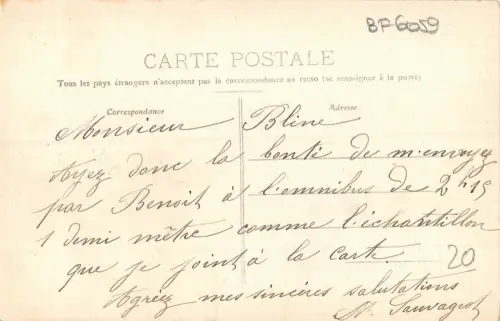 BF6059
CARTE POSTALE
Tous les pays étrangers n'acceptent pas la correspondance au recto (se renseigner à la poste)
Correspondance
Adresse
Monsieur Bline
Ayez donc la bonté de m'envoyez
par Benoit à l'omnibus de 2h15
1 demi mètre comme l'échantillon
que je joint à la carte.
20
Agréez mes sincères salutations
M. Sauvageot